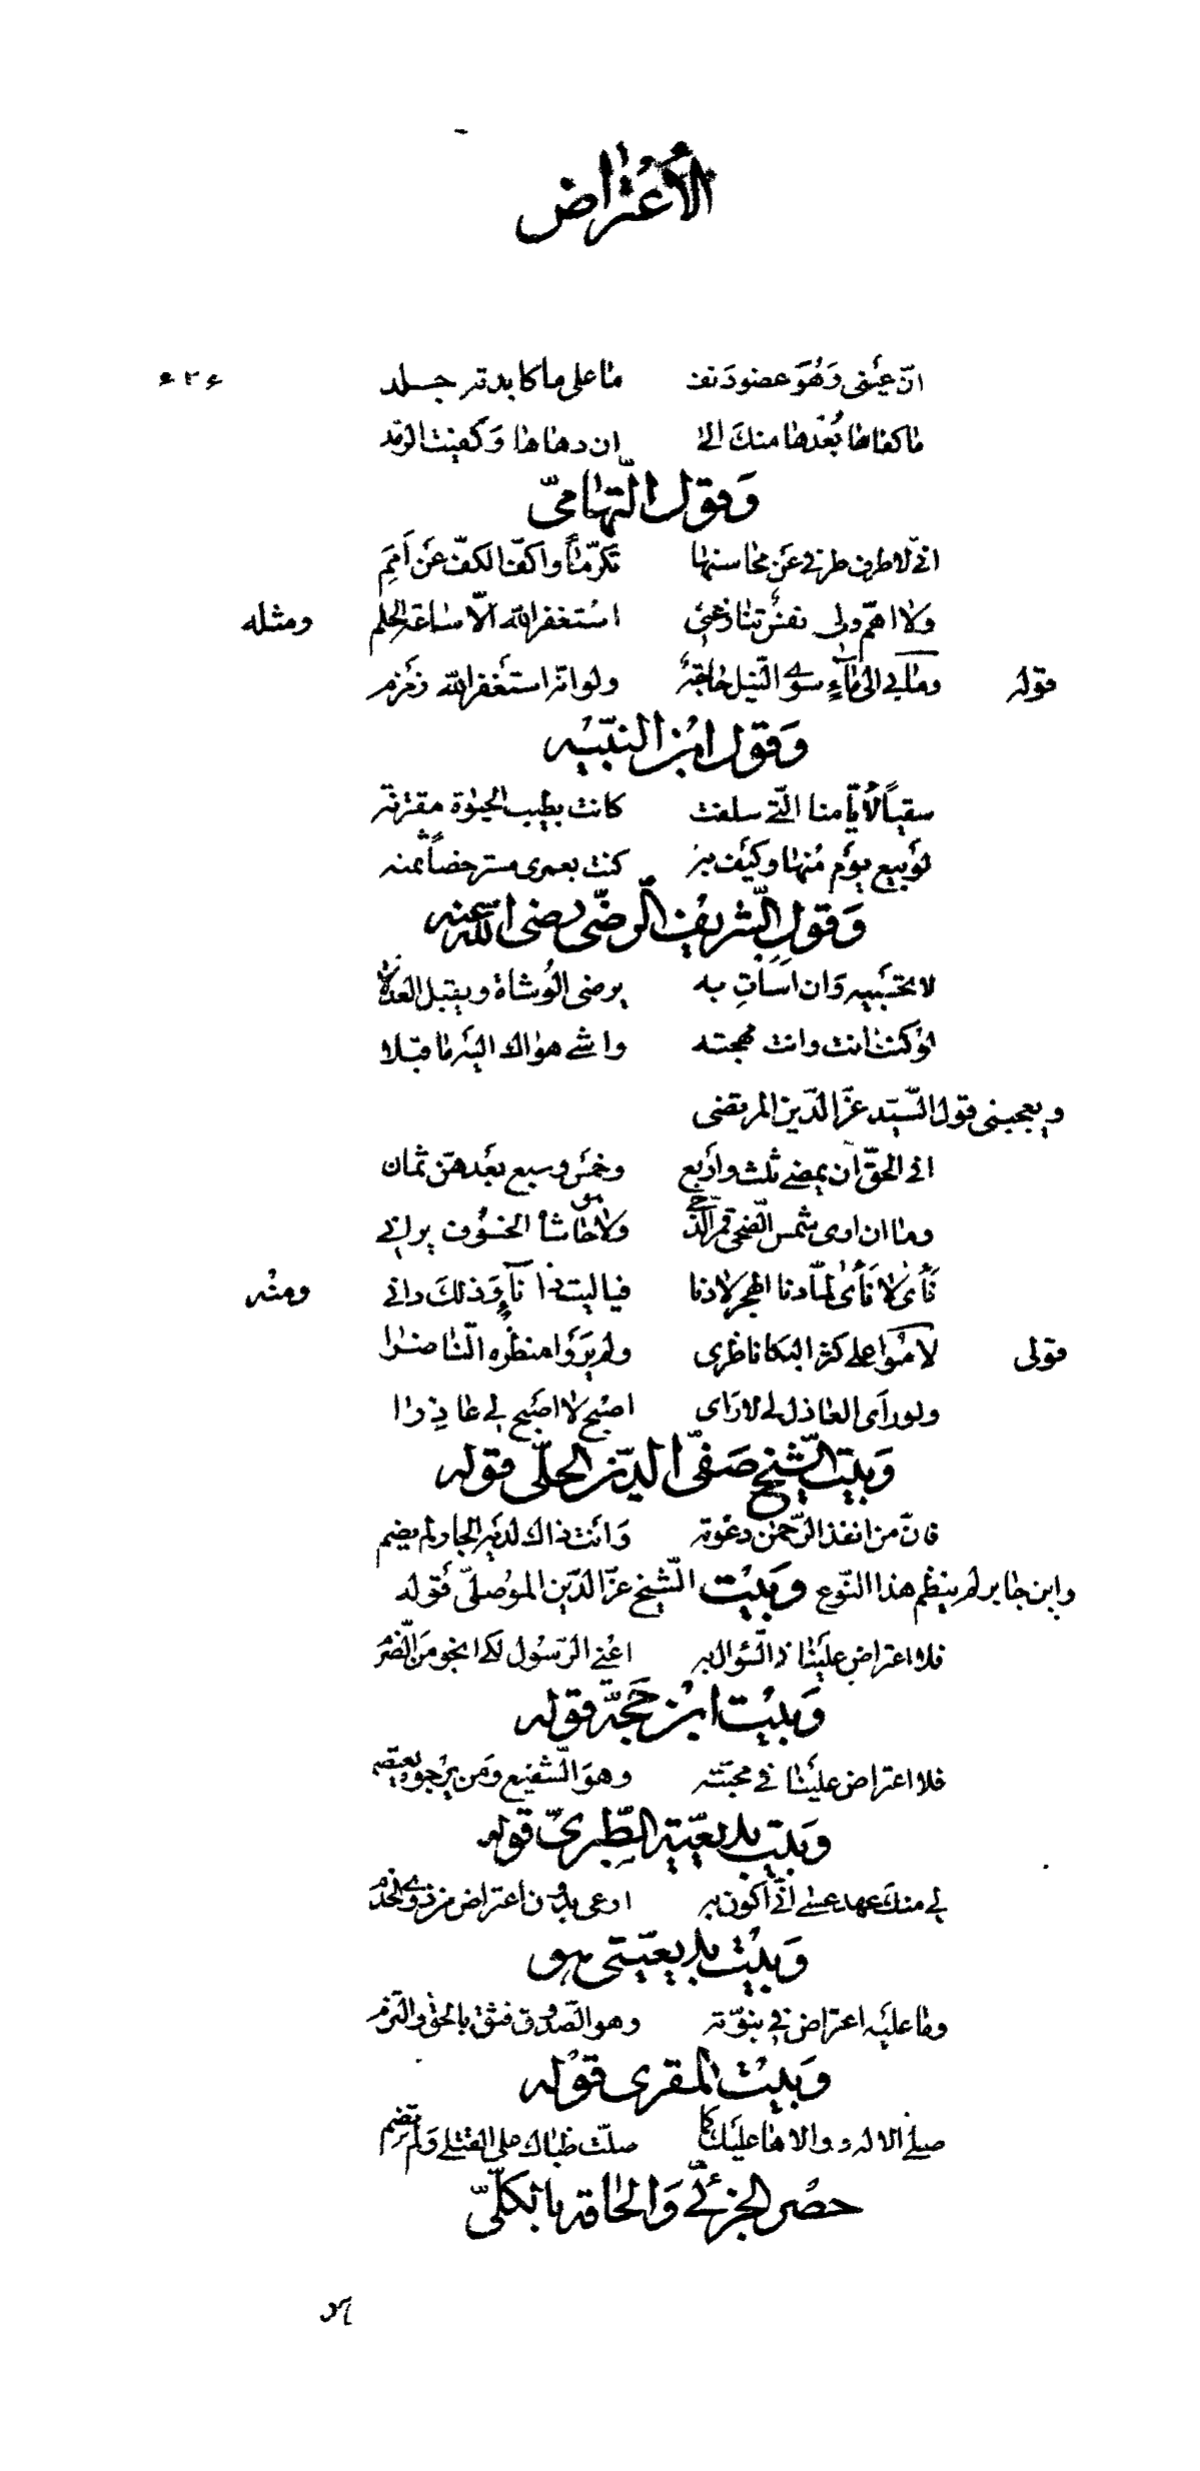 الأعتراض
انّ عينى وَهُوَ عضو دَنف ما على ما كابدته جلد ۶۲۶
ما كفاها بُعْدها منك الى ان دهاها وَكفيت الرمد
وَقول التّهامىّ
انّى لاطرف طرفى عَن محاسنها تكرّماً واكفّ الكفّ عَن اَمَمِ
ولا اهمّ ولى نفسٌ تنازعنى استغفر الله الّا ساعة الحلم ومثله
قوله ومالى الى ماءٍ سوى النّيل حاجةٌ ولو انّه استغفر الله زمزم
وَقول ابن النّبيه
سقياً لأيّامنا الّتى سلفت كانت بطيب الحيوة مقترنة
لو بيع يوم منها وكيف به كنت بعمرى مسترخصاً ثمنه
وَقول الشّريف الرضّى رضى الله عنه
لا تحسبيه وَان اسأتِ به يرضى الوُشاة ويقبل العذلا
لو كنت انت وانت مهجته واشى هواك اليه ما قبلا
ويعجبنى قول السّيّد عزّ الدّين المرتضى
افى الحقّ ان يمضى ثلث واربع وخمس وسبع بعدهنّ ثمان
وما ان ارى شمس الضّحى قمر الدّجى ولا حاشا الخسوف يرانى
نَأى لا نَأى لمّا دنا الهجر لا دنا فيا ليت ذا نآءٍ وَذلك دانى ومنه
قولى لاموا على كثر البكا ناظرى ولم يَرَوا منظره النّاضرا
ولو رآى العاذل لى لا رَاى اصبح لا اصبح لى عاذرا
وَبيت الشّيخ صَفىّ الدّين الحلّى قوله
فانّ من انفذ الرّحمن دعوته وَانت ذاك لديه الجار لم يضم
وابن جابر لم ينظم هذا النّوع وبيت الشّيخ عزّ الدّين الموصلىّ قوله
فلا اعتراض علينا ذا السّؤال به اعنى الرّسول لكى انجو من الضّرم
وَبيت ابن حجّة قوله
فلا اعتراض علينا فى محبّته وهو الشّفيع وَمن يرجوه يعتصم
وَبيت بديعيّة الطّبرىّ قوله
لى منك عهد عسى انّى اكون به ادعى بدون اعتراض من ذوى الخدم
وَبيت بديعيّتى هو
وما عليه اعتراض فى نبوّته وهو الصّدوق فثق بالحقّ والتزم
وَبيت المقرى قوله
صلّى الاله ووالاها عليك كما صلّت ظباك على القتلى وَلم تضم
حصر الجزئىّ وَالحاقه بالكلّىّ